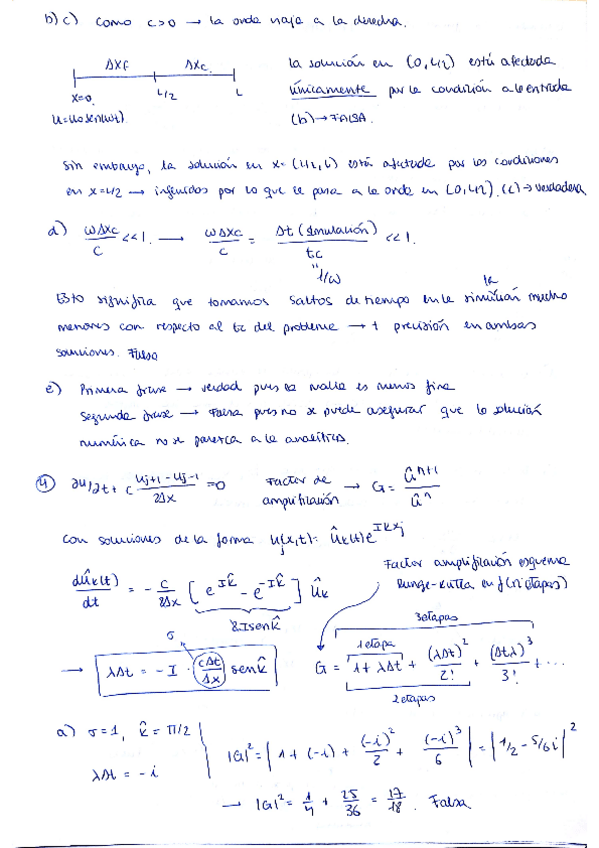 b) c) como c>0 → la onda viaja a la derecha.
Δxf Δxc
x=0 L/2 L
u=u₀sen(ωt).
la solución en (0,L/2) está afectada
únicamente por la condición a la entrada
(b) → FALSA.
Sin embargo, la solución en x=(L/2,L) está afectada por las condiciones
en x=L/2 → influidos por lo que le pasa a la onda en (0,L/2). (c) → verdadera
d) ωΔxc/c <<1. → ωΔxc/c = Δt (simulación)/tc <<1.
" 1/ω
Esto significa que tomamos saltos de tiempo en la simulación mucho
menores con respecto al tc del problema → + precisión en ambas
soluciones. Falsa
e) Primera frase → verdad pues la malla es menos fina
Segunda frase → Falsa pues no se puede asegurar que la solución
numérica no se parezca a la analítica.
4) ∂u/∂t + c (uj+1 - uj-1)/2Δx = 0 Factor de amplificación → G = û^(n+1)/û^n
con soluciones de la forma uj(x,t) = ûk(t)e^(Ikxj)
Factor amplificación esquema
Runge-Kutta en f(nºetapas)
dûk(t)/dt = - c/2Δx [e^(Ik̂) - e^(-Ik̂)] ûk
2Isenk̂
σ
→ λΔt = -I · (cΔt/Δx) senk̂
3etapas
1etapa
G = 1+λΔt + (λΔt)²/2! + (Δtλ)³/3! + ...
2etapas
a) σ=1, k̂ = π/2
λΔt = -i
|G|² = |1+(-i) + (-i)²/2 + (-i)³/6| = |1/2 - 5/6i|²
→ |G|² = 1/4 + 25/36 = 17/18. Falsa.